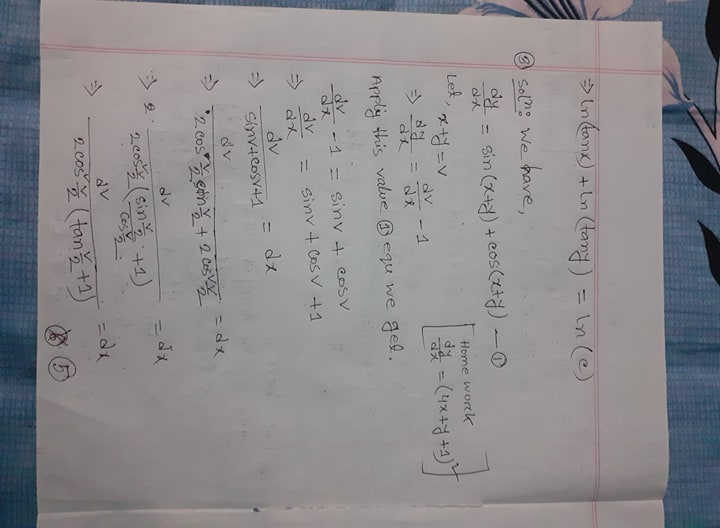 ⇒ ln(tanx) + ln(tany) = ln(c)
③ Soln: We have,
dy/dx = sin(x+y) + cos(x+y) — ①
Let, x+y = v
[Home worck
dy/dx = (4x+y+1)²]
⇒ dy/dx = dv/dx - 1
Apply this value ① equ we get.
dv/dx - 1 = sinv + cosv
⇒ dv/dx = sinv + cosv + 1
⇒ dv/(sinv+cosv+1) = dx
⇒ dv/(2cos v/2 sin v/2 + 2cos² v/2) = dx
⇒ dv/(2cos² v/2 (sin v/2 / cos v/2 + 1)) = dx
⇒ dv/(2cos² v/2 (tan v/2 + 1)) = dx
⑤